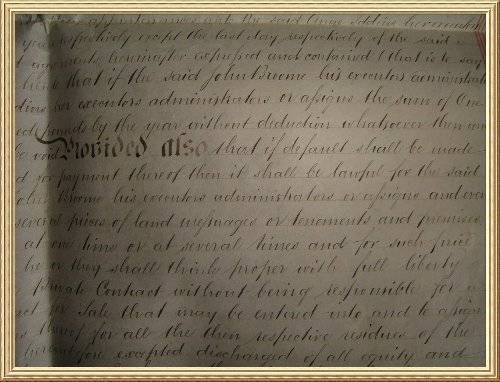 appurtenances unto the said
years respectively except the last day respectively of the said
agreements hereinafter expressed and contained that is to say
that if the said John Broome his executors administrat
executors administrators or assigns the sum of One
pounds by the year without deduction whatsoever then
be void Provided also that if default shall be made
payment thereof then it shall be lawful for the said
Broome his executors administrators or assigns and
several pieces of land messuages or tenements and premises
at one time or at several times and for such price
he or they shall think proper with full liberty
Private Contract without being responsible for
for Sale that may be entered into and to assign
thereof for all the then respective residues of the
hereinbefore excepted discharged of all equity and